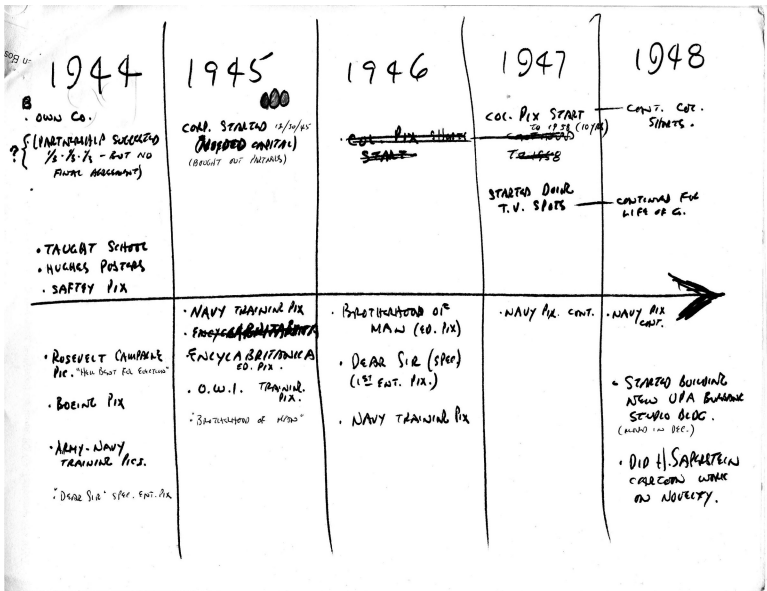 1944
B
· OWN CO.
? { (PARTNERSHIP SUGGESTED
1/3 · 1/3 · 1/3 - BUT NO
FINAL AGREEMENT)
· TAUGHT SCHOOL
· HUGHES POSTERS
· SAFTEY PIX
· ROSEVELT CAMPAIGNE
PIC. "HELL BENT FOR ELECTION"
· BOEING PIX
· ARMY-NAVY
TRAINING PICS.
· "DEAR SIR" SPEC. ENT. PIX
1945
CORP. STARTED 12/30/45
(NEEDED CAPITAL)
(BOUGHT OUT PARTNERS)
· NAVY TRAINING PIX
· ENCYCABRITANICA
· ENCYCABRITANICA
ED. PIX.
· O.W.I. TRAINING
PIX.
· "BROTHERHOOD OF MAN"
1946
· COL. PIX SHORTS
START
· BROTHERHOOD OF
MAN (ED. PIX)
· DEAR SIR (SPEC)
(1ST ENT. PIX.)
· NAVY TRAINING PIX
1947
COL. PIX START
TO 1958 (10 YRS)
CONTINUED
TO 1958
STARTED DOING
T.V. SPOTS
· NAVY PIX. CONT.
1948
CONT. COL.
SHORTS.
CONTINUED FOR
LIFE OF C.
· NAVY PIX
CONT.
· STARTED BUILDING
NEW UPA BURBANK
STUDIO BLDG.
(MOVED IN DEC.)
· DID H. SAPERSTEIN
CARTOON WORK
ON NOVELTY.